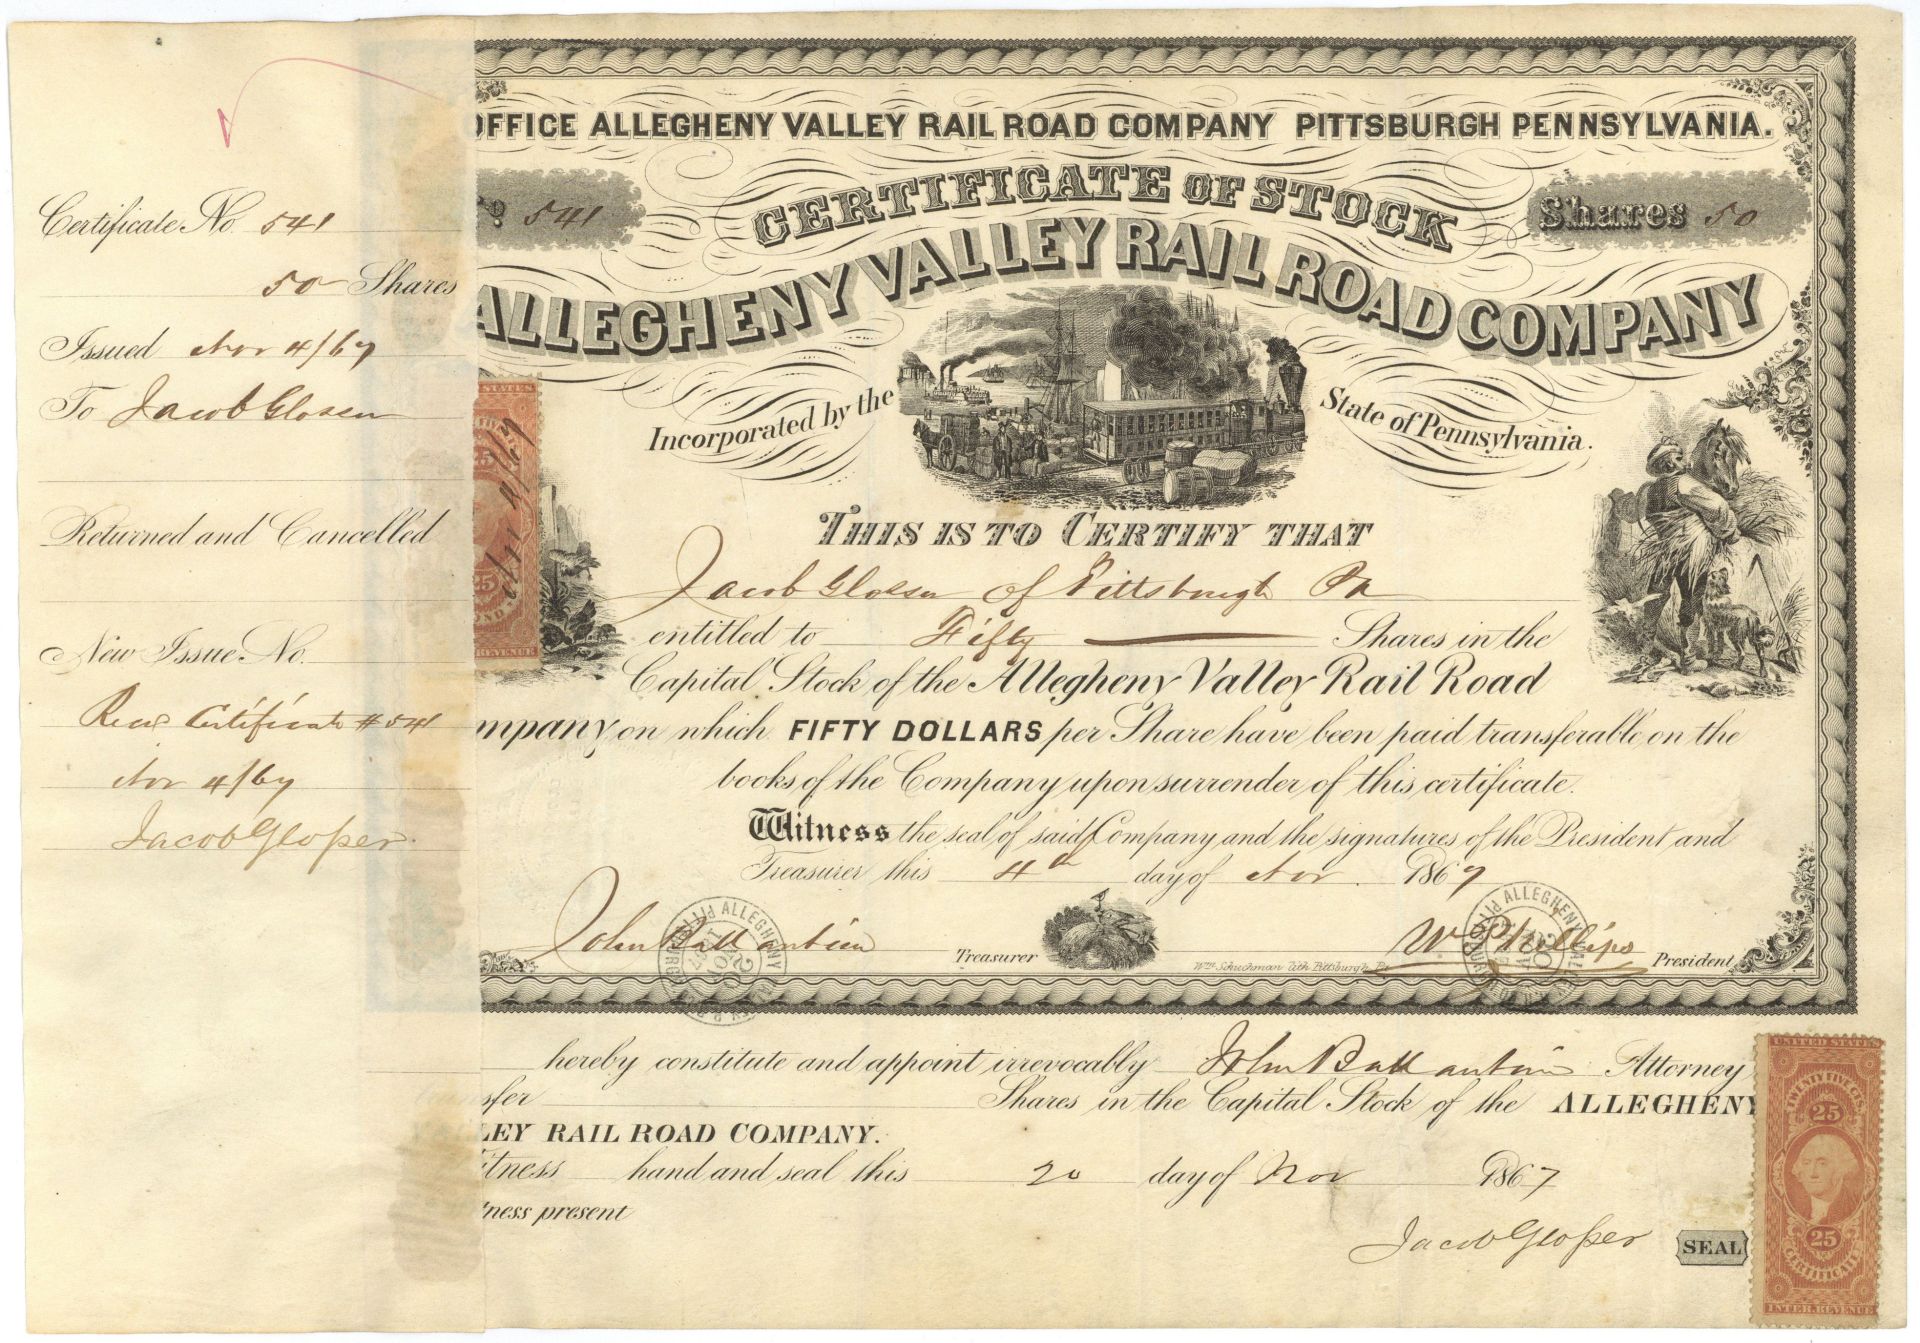 Certificate No. 541
50 Shares
Issued Nov 4/67
To Jacob Glosser
Returned and Cancelled
New Issue No.
Certificate # 541
Nov 4/67
Jacob Gloſser.
OFFICE ALLEGHENY VALLEY RAIL ROAD COMPANY PITTSBURGH PENNSYLVANIA.
No 541
CERTIFICATE OF STOCK
Shares 50
ALLEGHENY VALLEY RAIL ROAD COMPANY
Incorporated by the State of Pennsylvania.
STATES
25
Nov 4/67
25
REVENUE
THIS IS TO CERTIFY THAT
Jacob Glosser of Pittsburgh Pa
entitled to Fifty Shares in the
Capital Stock of the Allegheny Valley Rail Road
mpany on which FIFTY DOLLARS per Share have been paid transferable on the
books of the Company upon surrender of this certificate.
Witness the seal of said Company and the signatures of the President and
Treasurer this 4th day of Nov. 1867
John Ballantine Treasurer
Wm Phillips President
Wm. Schuchman Lith Pittsburgh Pa
ALLEGHENY VALLEY R.R. PITTSBURGH NOV 20 1867
ALLEGHENY VALLEY PITTSBURGH NOV 20
hereby constitute and appoint irrevocably John Ballantine Attorney
transfer Shares in the Capital Stock of the ALLEGHENY
LEY RAIL ROAD COMPANY.
itness hand and seal this 20 day of Nov 1867
tness present
Jacob Gloſser SEAL
UNITED STATES
TWENTY FIVE CTS.
25
25
CERTIFICATE
INTER. REVENUE